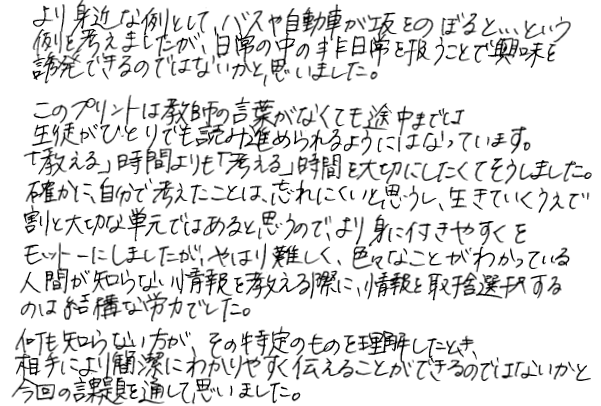 より身近な例として、バスや自動車が坂をのぼると…、という
例を考えましたが、日常の中の非日常を扱うことで興味を
誘発できるのではないかと、思いました。
このプリントは教師の言葉がなくても途中までは
生徒がひとりでも読み進められるようにはなっています。
「教える」時間よりも「考える」時間を大切にしたくてそうしました。
確かに、自分で考えたことは、忘れにくいと思うし、生きていくうえで
割と大切な単元ではあると思うので、より身に付きやすくを
モットーにしましたが、やはり難しく、色々なことがわかっている
人間が知らない情報を教える際に、情報を取捨選択する
のは結構な労力でした。
何も知らない方が、その特定のものを理解したとき、
相手により簡潔にわかりやすく伝えることができるのではないかと
今回の課題を通して思いました。